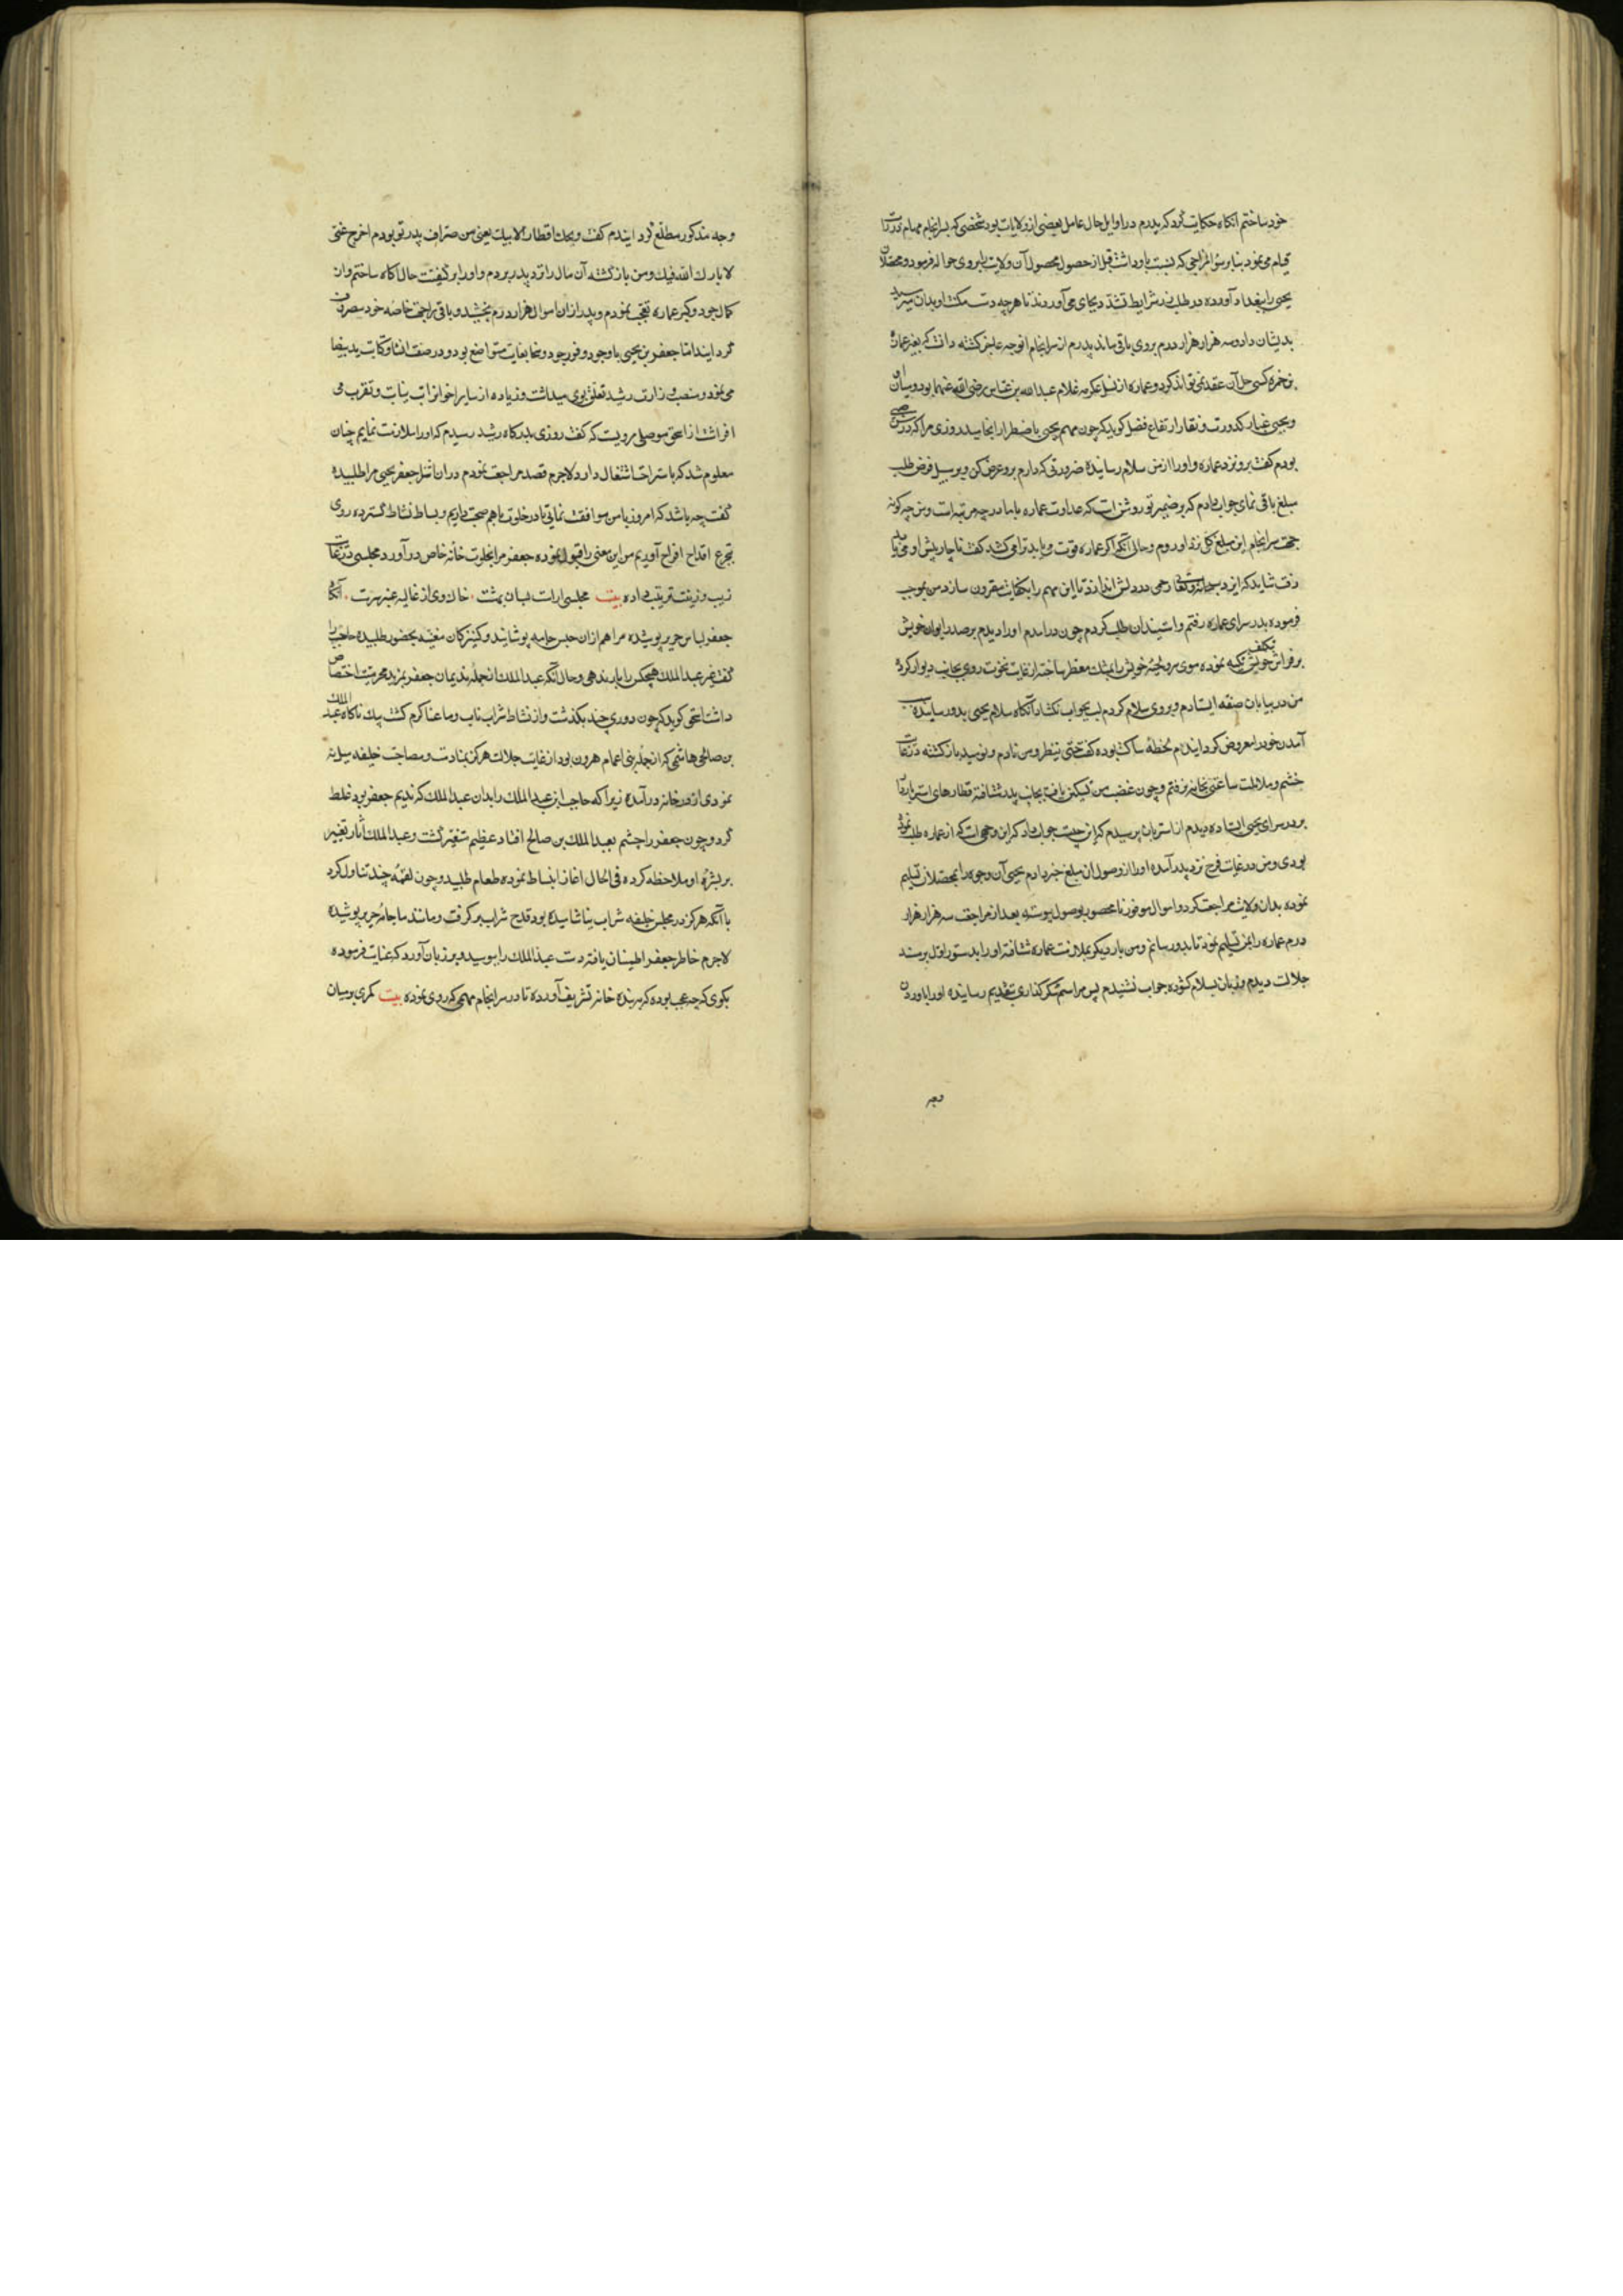 خود ساختم انکاه حکایت کرد که پدرم در اوایل حال عامل بعضی از ولایات بود شخصی که بسرانجام مهام وزارت
قیام می نمود بنابر سوٴ المزاجی که نسبت باو داشت قبل از حصول محصول آن ولایت را بروی حواله فرمود و محصلان
یحیی را ببغداد آورده در طلب زر شرایط تشدد بجای می آوردند تا هر چه دست مکنت او بدان میرسید
بدیشان داد و سه هزار هزار درم بروی باقی ماند پدرم از سرانجام انوجه عاجز کشته دانست که بغیر عماره
بن حمزه کسی حل آن عقد نمی تواند کرد و عماره از نسل عکرمه غلام عبد الله بن عباس رضی الله عنهما بود و میان او
و یحیی غبار کدورت و نقار ارتفاع فضل کوید که چون مهم یحیی باضطرار انجامید روزی مرا که در
بودم کفت برو نزد عماره و او را از من سلام رسانیده ضرورتی که دارم برو عرض کن و بر سبیل قرض طلب
مبلغ باقی نمای جواب دادم که بر ضمیر تو روشن است که عداوت عماره با ما در چه مرتبه است و من چه کونه
جهت سرانجام این مبلغ کلی نزد او روم و حال آنکه اکر عماره قوت و یابد ترا می کشد کفت ناچار پیش او می باید
رفت شاید که ایزد سبحانه و تعالی رحمی در دلش اندازد تا این مهم را بکفایت مقرون سازد من بموجب
فرموده بدر سرای عماره رفتم و استیذان طلب کردم چون درآمدم او را دیدم بر صدر ایوان خویش
بر فراش خویش تکیه نموده موی سر و لحیهٔ خویش را بمشک معطر ساخته از غایت نخوت روی بجانب دیوار کرده
من در پایان صفه ایستادم و بروی سلام کردم لب بجواب نکشاد آنکاه سلام یحیی بدو رسانیده سبب
آمدن خود را معروض کردانیدم لحظهٔ ساکت بوده کفت حتی ینظر و من نادم و نومید بازکشته از غایت
خشم و ملالت ساعتی بخانه نرفتم و چون غضب من تسکین یافت بجانب پدر شتافته قطارهای استر باردار
بر در سرای یحیی ایستاده دیدم از استربانان پرسیدم که این چیست جواب داد که این وجهی است که از عماره طلب نموده
بودی و من در غایت فرح نزد پدر آمده او را از وصول ان مبلغ خبر دادم یحیی آن وجوه را بمحصلان تسلیم
نموده بدان ولایت مراجعت کرد و اموال موفور نامحصور بوصول پیوسته بعد از مراجعت سه هزار هزار
درم عماره را بمن تسلیم نمود تا بدو رسانم و من بار دیکر بملازمت عماره شتافته او را بدستور اول بر مسند
جلالت دیدم و زبان بسلام کشوده جواب نشنیدم پس مراسم شکر کذاری بتقدیم رسانیده او را باوردن
وجه
وجه مذکور مطلع کردانیدم کفت ویحک اقطار لابیک یعنی من صراف پدر تو بودم اخرج عنی
لا بارک الله فیک و من بازکشته آن مال را نزد پدر بردم و او را بر کیفیت حال آکاه ساختم و از
کمال جود و کبر عماره تعجب نمودم و پدر از ان اموال هزار درم بمن بخشید و باقی را بجهت خاصه خود مصروف
کردانید اما جعفر بن یحیی با وجود وفور جود و سخا بغایت متواضع بود و در صنعت انشا و کتابت ید بیضا
می نمود و منصب وزارت رشید تعلق بوی میداشت و زیاده از سایر اخوان رایت نیابت و تقرب می
افراشت از اسحق موصلی مرویست که کفت روزی بدرکاه رشید رسیدم که او را ملازمت نمایم چنان
معلوم شد که باستراحت اشتغال دارد لاجرم قصد مراجعت نمودم در ان اثنا جعفر یحیی مرا طلبیده
کفت چه باشد که امروز با من موافقت نمائی تا در خلوت باهم صحبت داریم و بساط نشاط کسترده روی
بتجرع اقداح افراح آوریم من این معنی را قبول نموده جعفر مرا بخلوت خانه خاص درآورد و مجلسی در غایت
زیب و زینت ترتیب داده بیت مجلسی آراست لبسان بهشت ۰ خاک وی از غالیه عنبر سرشت ۰ آنکاه
جعفر لباس حریر پوشیده مرا هم از ان جنس جامه پوشانید و کنیزکان مغنیه بحضور طلبیده حاجب را
کفت غیر عبد الملک هیچکس را بار ندهی و حال آنکه عبد الملک از جمله ندیمان جعفر بمزید محرمیت اختصاص
داشت اسحق کوید که چون دوری چند بکذشت و از نشاط شراب ناب دماغها کرم کشت بیک ناکاه عبد الملک
بن صالح هاشمی که از جمله بنی اعمام هرون بود از غایت جلالت هرکز بمنادمت و مصاحبت خلیفه میل نه
نمودی از در خانه درآمد زیرا که حاجب ابن عبد الملک را بدان عبد الملک که ندیم جعفر بود غلط
کرد و چون جعفر را چشم بعبد الملک بن صالح افتاد عظیم متغیر کشت و عبد الملک آثار تغییر
بر بشرهٔ او ملاحظه کرده فی الحال اغاز انبساط نموده طعام طلبید و چون لقمهٔ چند تناول کرد
با آنکه هرکز در مجلس خلیفه شراب نیاشامیده بود قدح شراب بر کرفت و مانند ما جامهٔ حریر پوشیده
لاجرم خاطر جعفر اطمینان یافته دست عبد الملک را ببوسید و بر زبان آورد که عنایت فرموده
بکوی که چه عجب بوده که ببنده خانه تشریف آورده تا در سرانجام مهمی که روی نموده بیت کمری بر میان